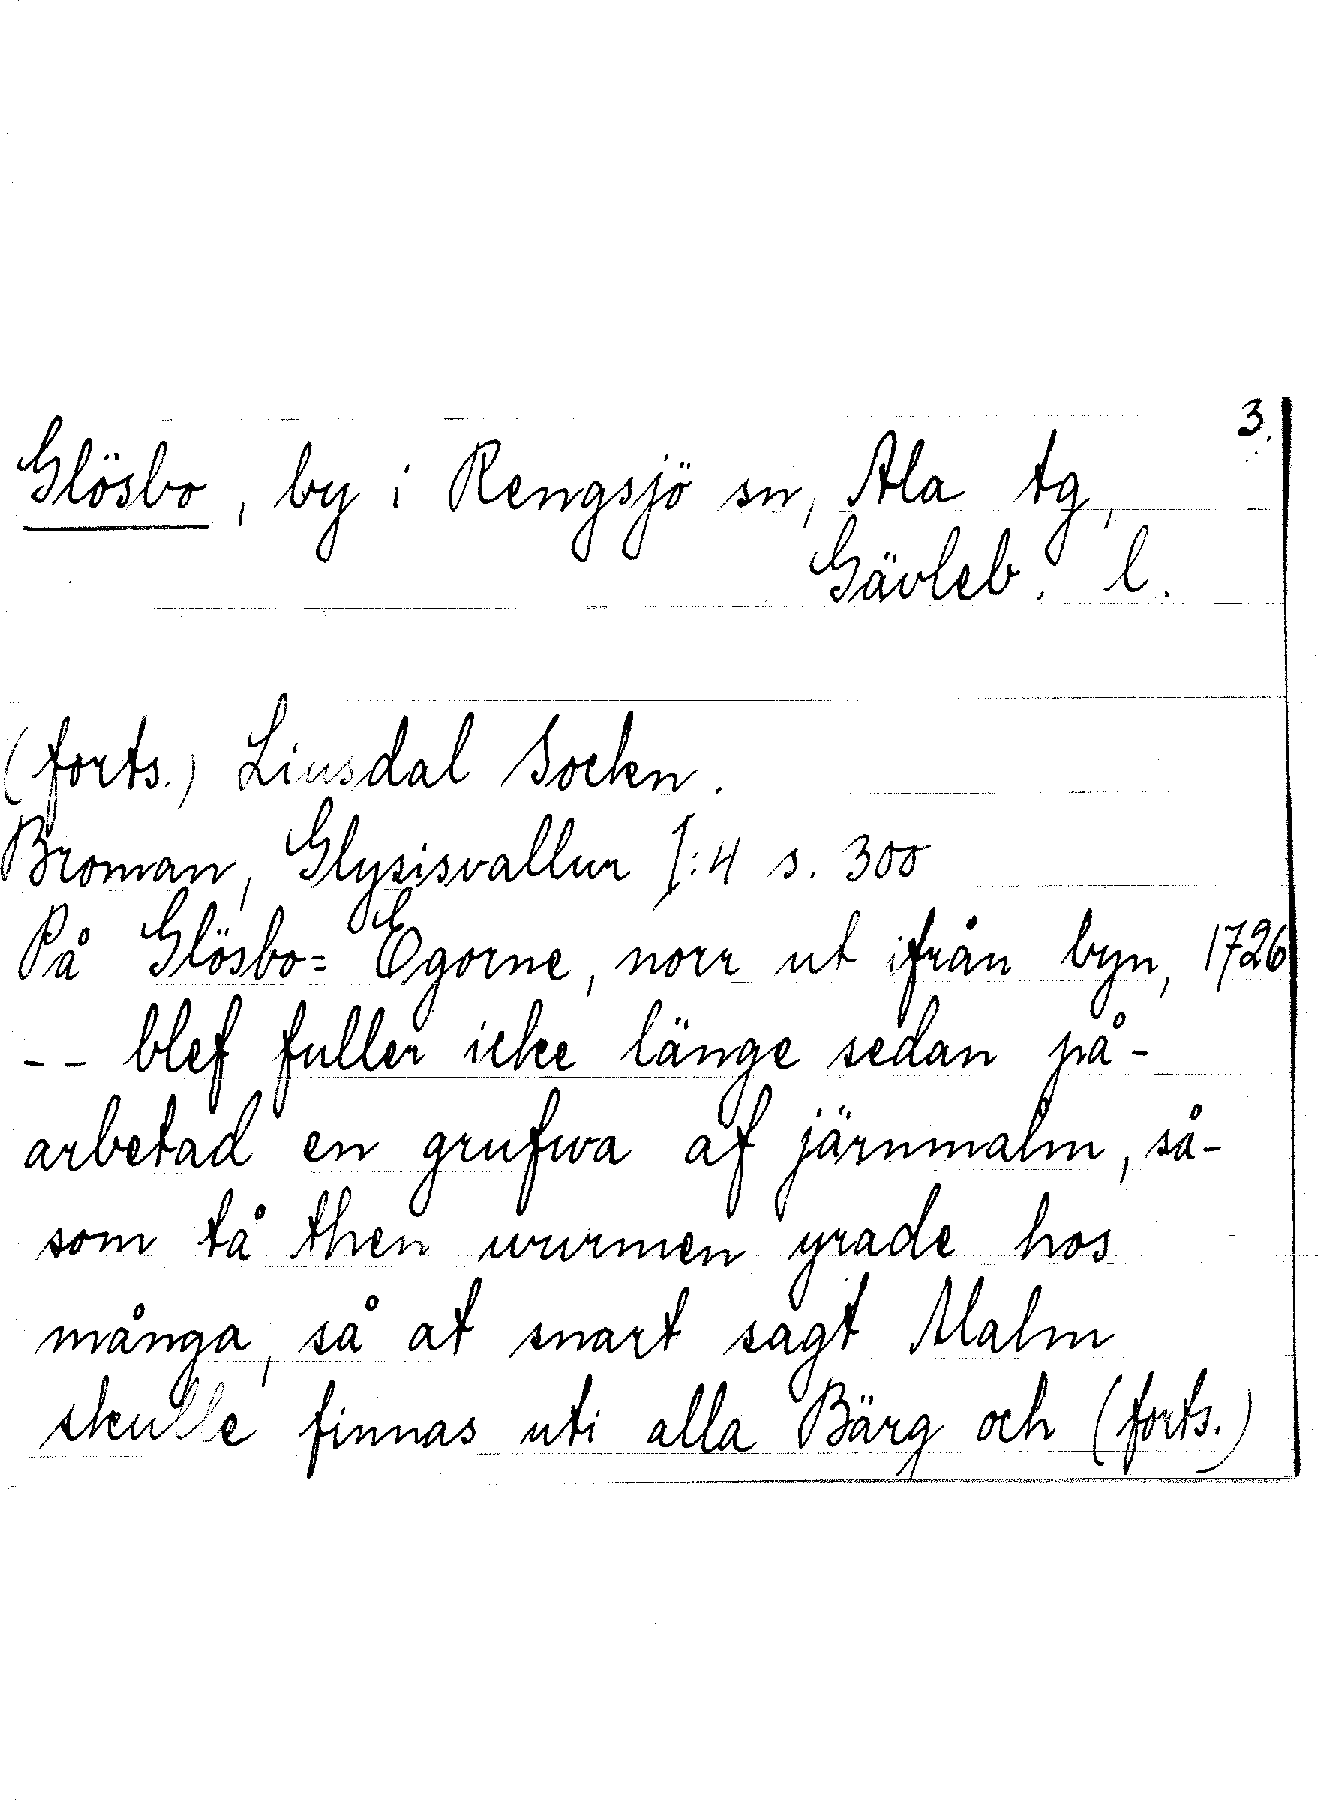 3.
Glösbo, by i Rengsjö sn, Ala tg,
Gävleb. l.
(forts.) Liusdal Sockn.
Broman, Glysisvallur I:4 s. 300
På Glösbo= Egorne, norr ut ifrån byn, 1726
-- blef fuller icke länge sedan på-
arbetad en grufwa af järnmalm, så-
som tå then wurmen yrade hos
många, så at snart sagt Malm
skulle finnas uti alla Bärg och (forts.)